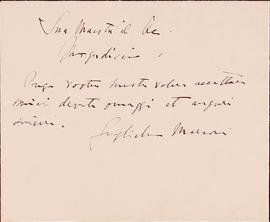 Sua Maestà il Re
Mogadiscio.
Prego vostra maestà voler accettare
miei devoti omaggi et auguri
sinceri.
Guglielmo Marconi